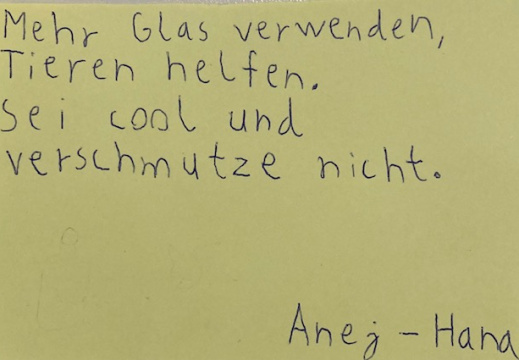 Mehr Glas verwenden,
Tieren helfen.
Sei cool und
verschmutze nicht.
Anej – Hana